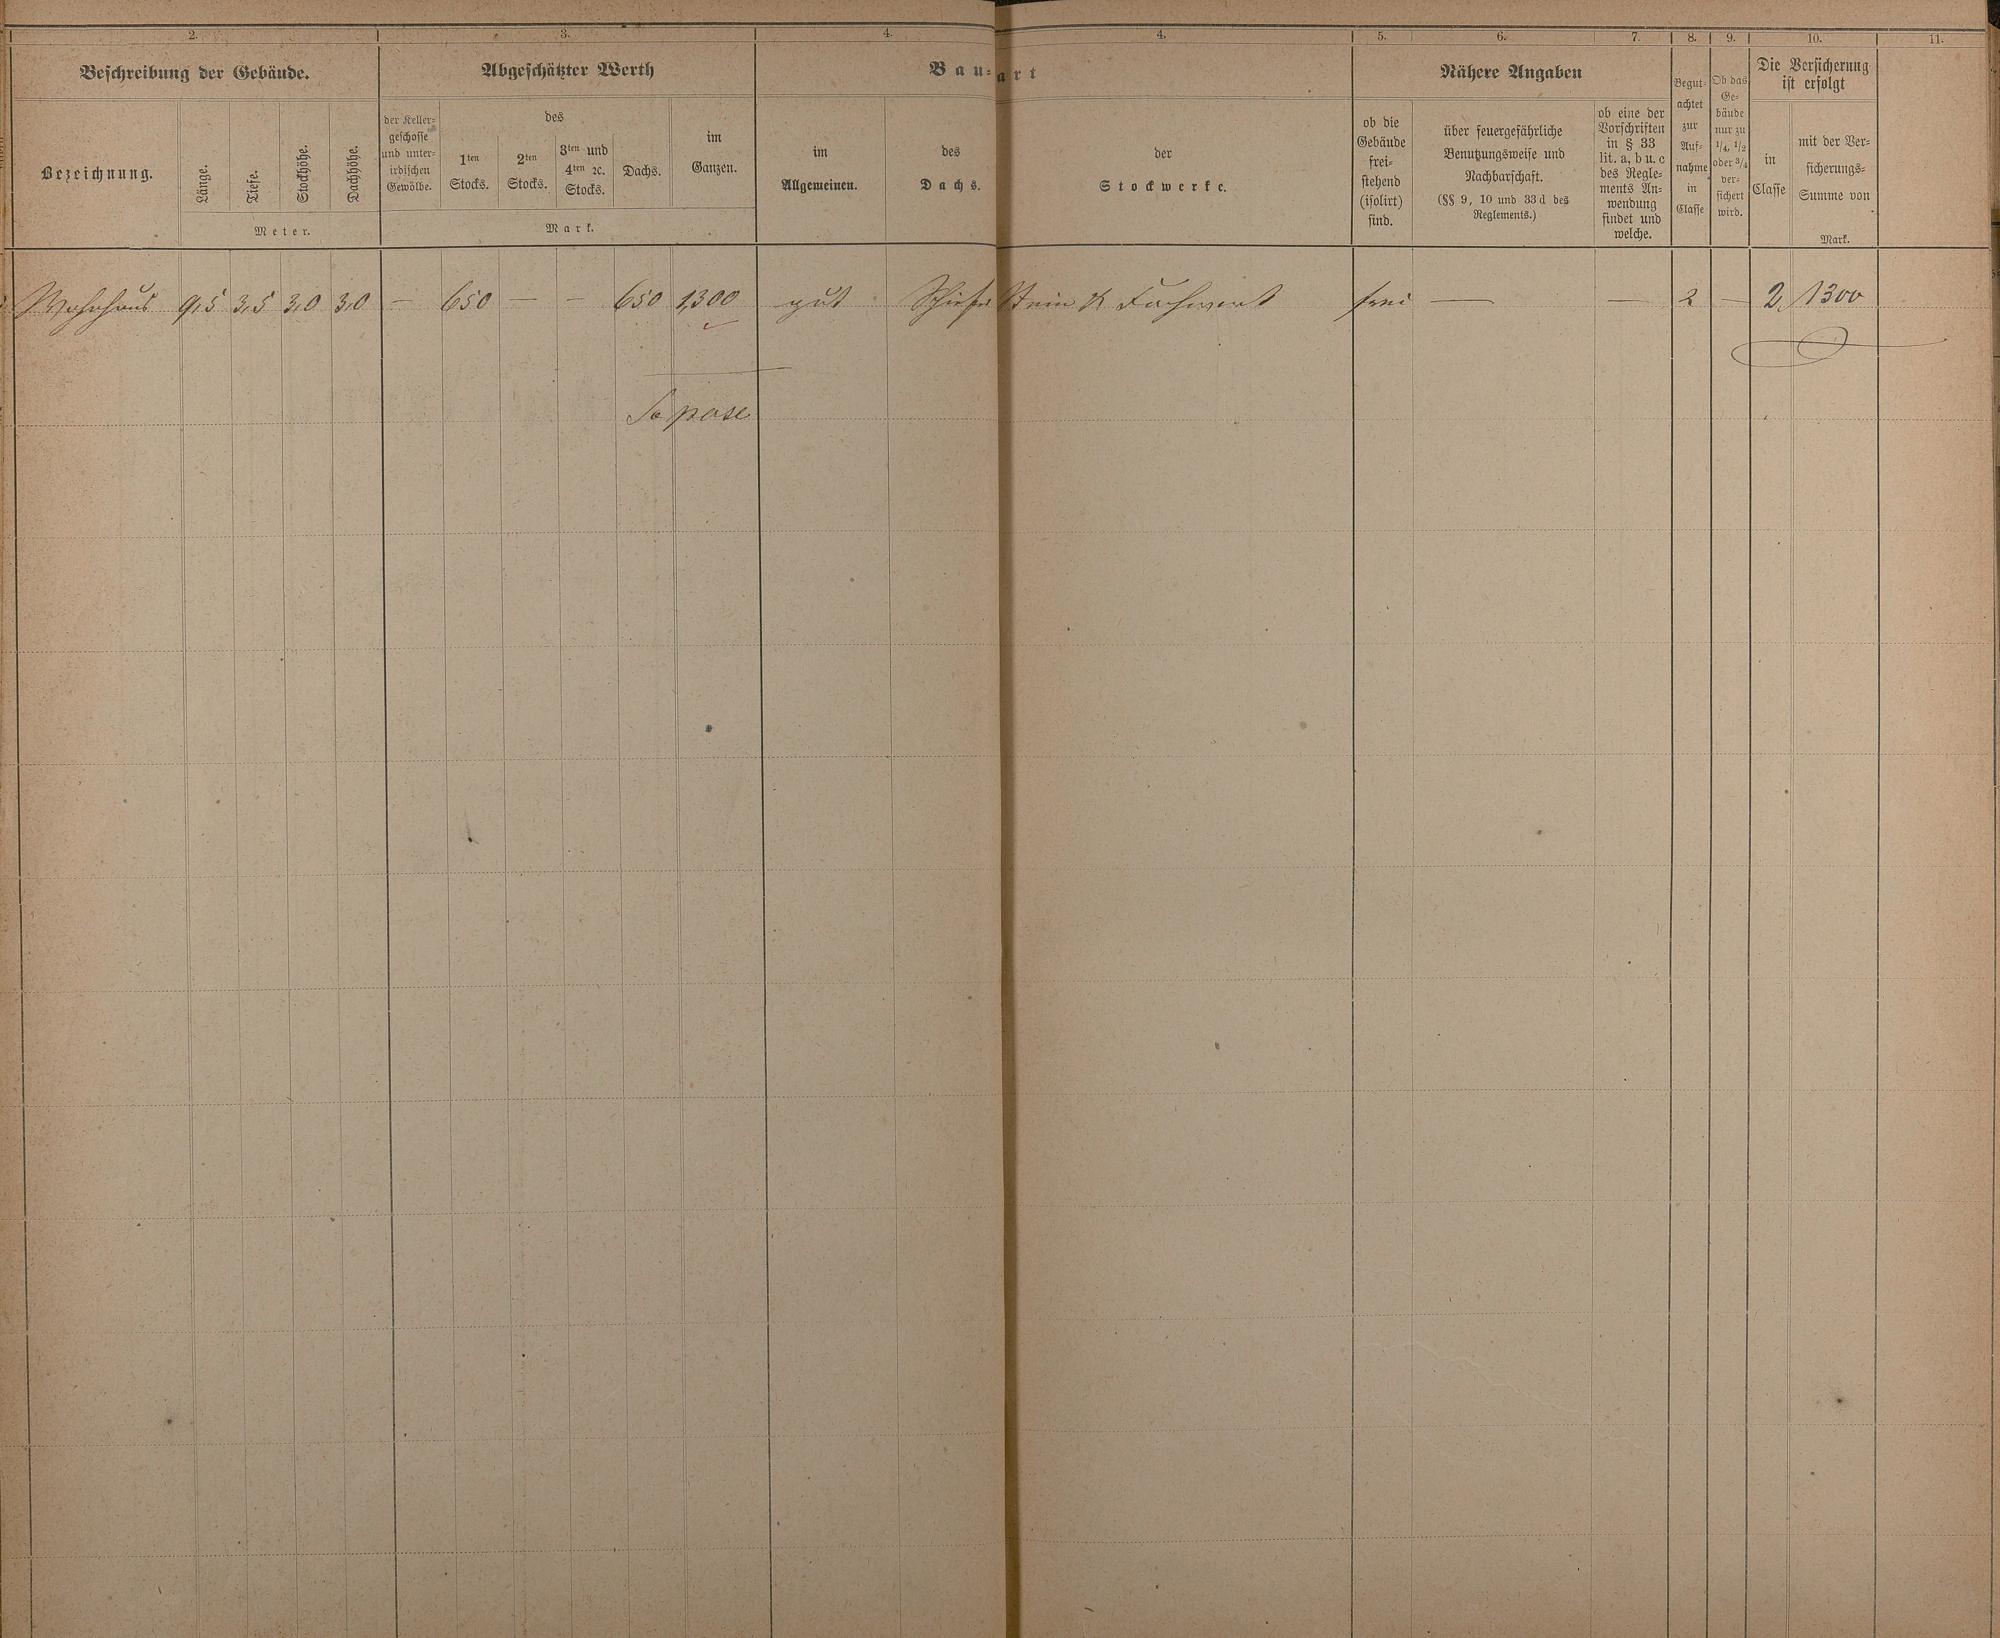 2. 3. 4. 4. 5. 6. 7. 8. 9. 10. 11.
Beschreibung der Gebäude. Abgeschätzter Werth Bau-art Nähere Angaben
Bezeichnung.
Länge.
Tiefe.
Stockhöhe.
Dachhöhe.
Meter.
der Keller-
geschosse
und unter-
irdischen
Gewölbe.
des
1ten
Stocks.
2ten
Stocks.
3ten und
4ten ꝛc.
Stocks.
Dachs.
im
Ganzen.
Mark.
im
Allgemeinen.
des
Dachs.
der
Stockwerke.
ob die
Gebäude
frei-
stehend
(isolirt)
sind.
über feuergefährliche
Benutzungsweise und
Nachbarschaft.
(§§ 9, 10 und 33 d des
Reglements.)
ob eine der
Vorschriften
in § 33
lit. a, b u. c
des Regle-
ments An-
wendung
findet und
welche.
Begut-
achtet
zur
Auf-
nahme
in
Classe
Ob das
Ge-
bäude
nur zu
1/4, 1/2
oder 3/4
ver-
sichert
wird.
Die Versicherung
ist erfolgt
in
Classe
mit der Ver-
sicherungs-
Summe von
Mark.
Wohnhaus 9,5 3,5 3,0 3,0 — 650 — — 650 1,300 gut Schiefer Stein & Fachwerk frei — — 2 — 2 1300